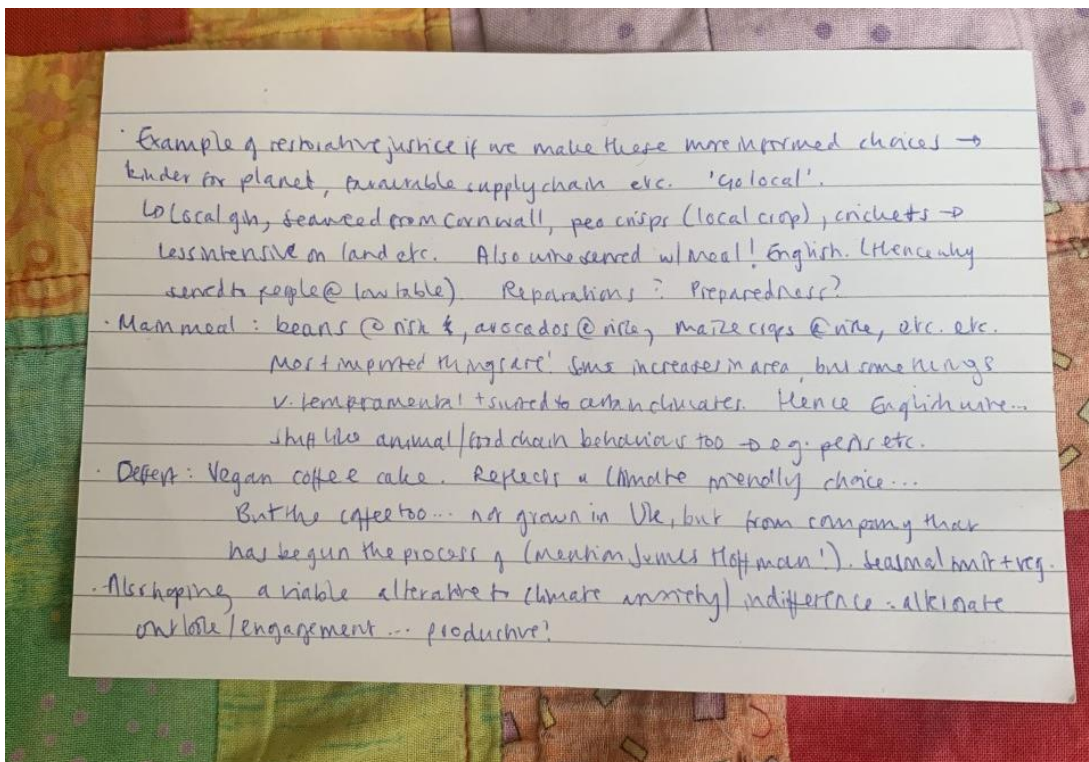 · Example of restorative justice if we make these more informed choices →
kinder for planet, favourable supply chain etc. 'Go local'.
↳ Local gin, seaweed from Cornwall, pea crisps (local crop), crickets →
less intensive on land etc. Also wine served w/ meal! English. (Hence why
served to people @ low table). Reparations? Preparedness?
· Main meal: beans @ risk &, avocados @ risk, maize crops @ risk, etc. etc.
Most imported things are! Some increases in area, but some things
v. tempramental + suited to certain climates. Hence English wine...
stuff like animal/food chain behaviours too → e.g. pests etc.
· Dessert: Vegan coffee cake. Reflects a climate friendly choice...
But the coffee too... not grown in UK, but from company that
has begun the process of (mention James Hoffman!). Seasonal fruit + veg.
· Also hoping a viable alterative to climate anxiety/indifference - alternate
outlook/engagement... productive!